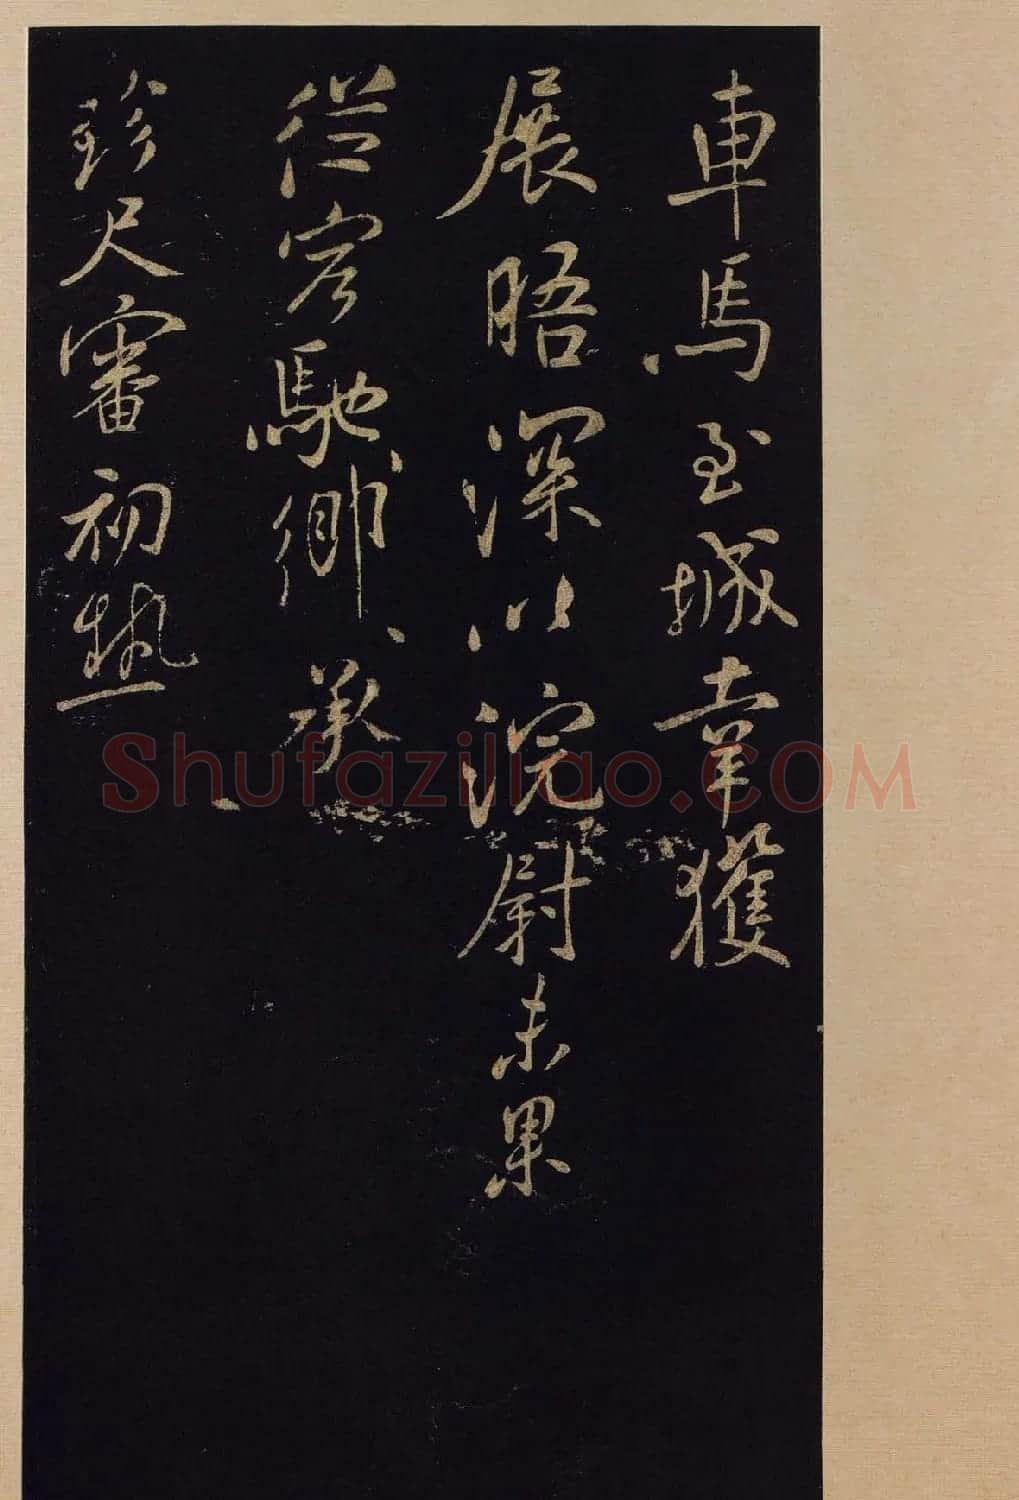 車馬至城幸獲
展晤深以浣尉未果
從容馳鄉承
珎尺審初熱
Shufaziliao.COM